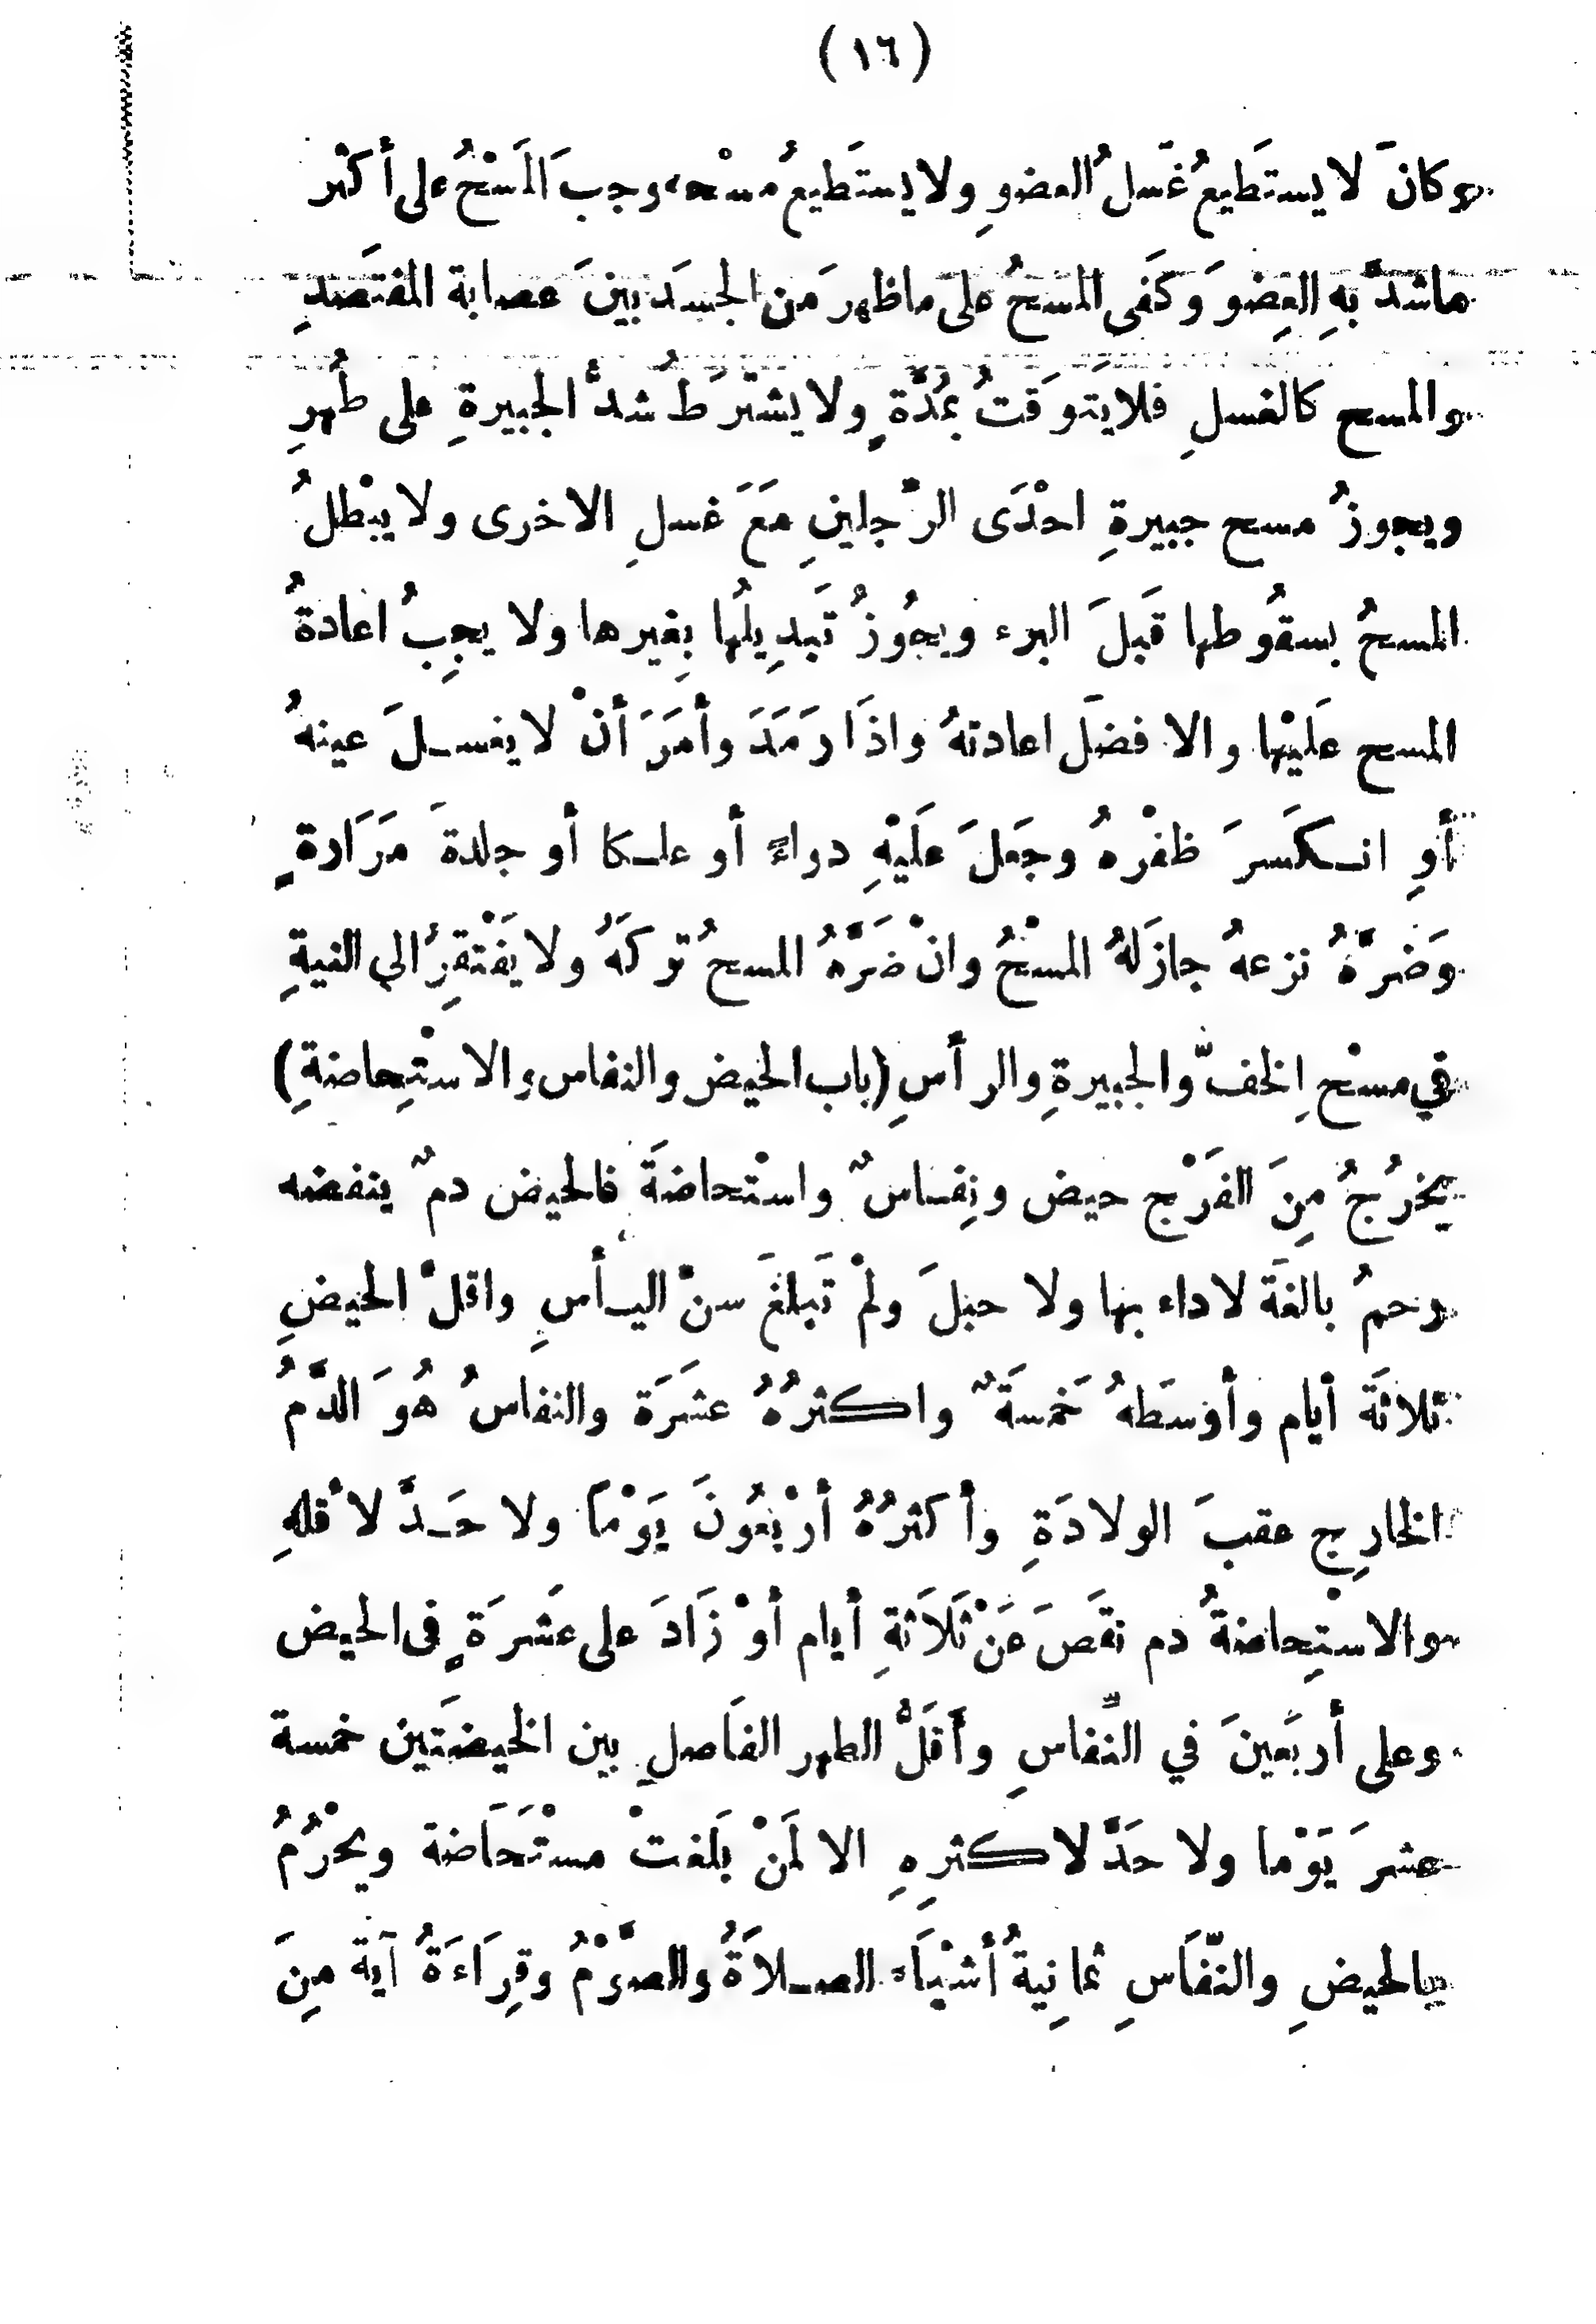 (١٦)
وكانَ لا يستَطيعُ غَسلُ العضوِ ولا يستَطيعُ مسْحه وجبَ المَسْحُ على أكثْر
ماشدَّ بهِ العِضوَ وَكَفَى المسَحُ على ماظهرَ مَن الجسَد بينَ عصابة المفتَصدِ
والمسح كالغسلِ فلايَتوَقتُ بمُدَّةٍ ولا يشترَطُ شدُّ الجبيرةِ على طُهرِ
ويجوزُ مسح جبيرةِ احْدَى الرّجلينِ مَعَ غسلِ الاخرى ولا يبْطلُ
المسحُ بسقُوطها قَبلَ البرء ويجُوزُ تَبدِيلُها بِغيرها ولا يجِبُ اعادةُ
المسح عَليْها والافضَل اعادتهُ واذَا رَمَدَ وأمَرَ أنْ لا يغسـلَ عينهُ
أوِ انـكَسرَ ظفْرهُ وجَعلَ عَليْهِ دواءً أو علـكا أو جلدةَ مَرَارةٍ
وَضرَّهُ نزعهُ جازَلهُ المسْحُ وانْ ضَرَّهُ المسحُ تركَهُ ولا يَفْتقِرُ الي النيةِ
في مسْحِ الخفّ والجبيرةِ والرأسِ (باب الحيض والنفاس والاستْحِاضةِ)
يخرُجُ مِنَ الفَرْج حيض ونِفـاسٌ واستْحاضةَ فالحيض دمٌ ينفضه
رحمُ بالغَة لاداء بها ولا حبلَ ولمْ تَبلغَ سنْ اليـأسِ واقلْ الحيضِ
ثلاثَة أيام وأوسَطهُ خَمسَةٌ واكثرُهُ عشَرَة والنفاسُ هُوَ الدَّمُ
الخارِج عقبَ الولادَةِ وأكثرُهُ أرْبعُونَ يَوْماً ولا حَـدَّ لأقلهِ
والاستْحِاضةُ دم نقَصَ عَنْ ثَلاَثةِ أيام أوْ زَادَ على عشَرَةٍ فى الحيض
وعلى أربَعينَ في النِّفاسِ وأَقَلُّ الطهر الفَاصلِ بين الحيضَتين خمسة
عشرَ يَوْما ولا حَدَّ لاكثرِهِ الا لمَنْ بَلغتْ مسْتَحَاضة ويحْرُمُ
بالحيضِ والنّفَاسِ ثمانِيةُ أشْيَاء الصـلاَةُ والصَّوْمُ وقِرَاءَةُ آية مِنَ